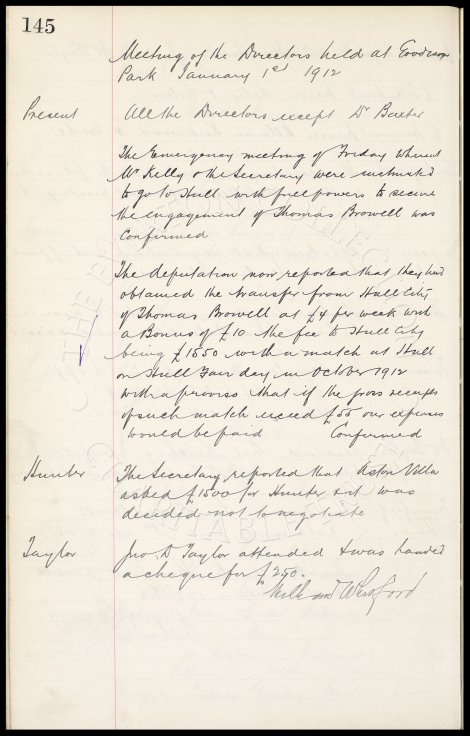 145
Meeting of the Directors held at Goodison
Park January 1st 1912
Present All the Directors except Dr Baxter
The Emergency meeting of Friday whereat
Mr Kelly & the Secretary were instructed
to go to Hull with full powers to secure
the engagement of Thomas Browell was
Confirmed
The deputation now reported that they had
obtained the transfer from Hull City
of Thomas Browell at £4 per week with
a Bonus of £10 the fee to Hull City
being £1550 with a match at Hull
on Hull Fair day in October 1912
with a proviso that if the gross receipts
of such match exceed £55 our expenses
would be paid Confirmed
Hunter The Secretary reported that Aston Villa
asked £1500 for Hunter & it was
decided not to negotiate
Taylor Jno. D Taylor attended & was handed
a cheque for £250.